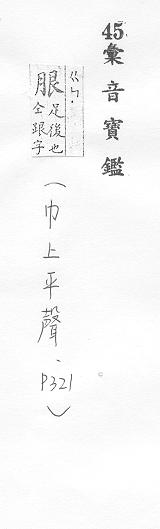 45彙音寶鑑
ㄍㄣ.
足後也
仝跟字
（巾上平聲、P321）